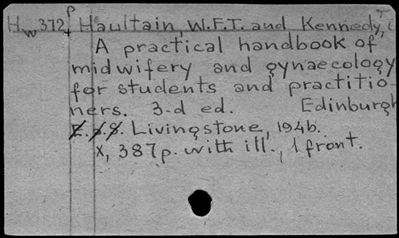 Hw372f Haultain, W.F.T. and Kennedy,
A practical handbook of
midwifery and gynaecology
for students and practitio-
ners. 3-d ed. Edinburgh
E. & S. Livingstone, 194b.
x, 387p. with ill., 1 front.